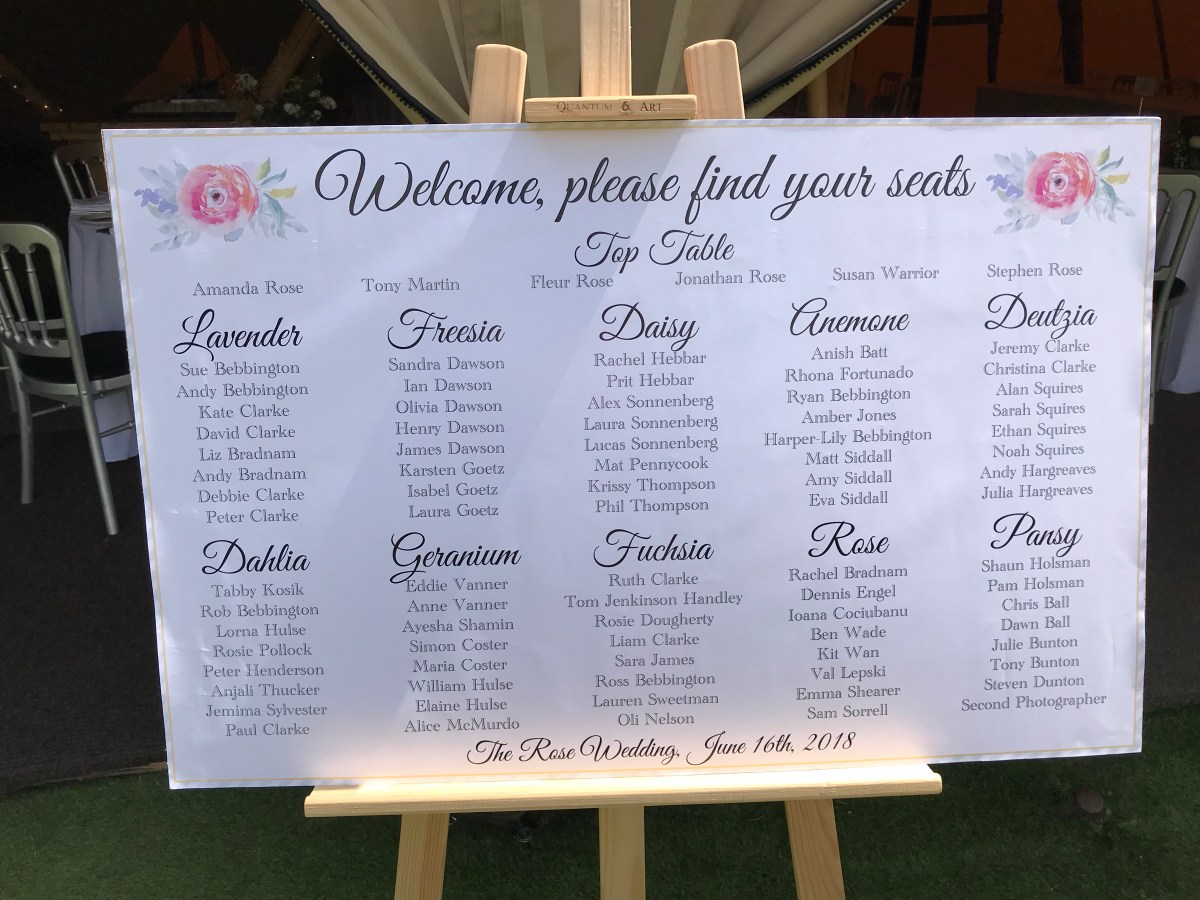 QUANTUM & ART
Welcome, please find your seats
Top Table
Amanda Rose
Tony Martin
Fleur Rose
Jonathan Rose
Susan Warrior
Stephen Rose
Lavender
Sue Bebbington
Andy Bebbington
Kate Clarke
David Clarke
Liz Bradnam
Andy Bradnam
Debbie Clarke
Peter Clarke
Freesia
Sandra Dawson
Ian Dawson
Olivia Dawson
Henry Dawson
James Dawson
Karsten Goetz
Isabel Goetz
Laura Goetz
Daisy
Rachel Hebbar
Prit Hebbar
Alex Sonnenberg
Laura Sonnenberg
Lucas Sonnenberg
Mat Pennycook
Krissy Thompson
Phil Thompson
Anemone
Anish Batt
Rhona Fortunado
Ryan Bebbington
Amber Jones
Harper-Lily Bebbington
Matt Siddall
Amy Siddall
Eva Siddall
Deutzia
Jeremy Clarke
Christina Clarke
Alan Squires
Sarah Squires
Ethan Squires
Noah Squires
Andy Hargreaves
Julia Hargreaves
Dahlia
Tabby Kosik
Rob Bebbington
Lorna Hulse
Rosie Pollock
Peter Henderson
Anjali Thucker
Jemima Sylvester
Paul Clarke
Geranium
Eddie Vanner
Anne Vanner
Ayesha Shamin
Simon Coster
Maria Coster
William Hulse
Elaine Hulse
Alice McMurdo
Fuchsia
Ruth Clarke
Tom Jenkinson Handley
Rosie Dougherty
Liam Clarke
Sara James
Ross Bebbington
Lauren Sweetman
Oli Nelson
Rose
Rachel Bradnam
Dennis Engel
Ioana Cociubanu
Ben Wade
Kit Wan
Val Lepski
Emma Shearer
Sam Sorrell
Pansy
Shaun Holsman
Pam Holsman
Chris Ball
Dawn Ball
Julie Bunton
Tony Bunton
Steven Dunton
Second Photographer
The Rose Wedding, June 16th, 2018